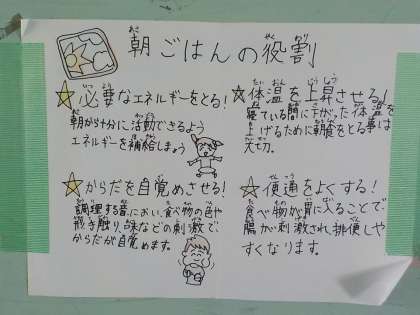 朝ごはんの役割
☆必要なエネルギーをとる!
朝から十分に活動できるよう
エネルギーを補給しましょう
☆体温を上昇させる!
寝ている間に下がった体温を
上げるために朝食をとる事は
大切。
☆からだを目覚めさせる!
調理する音、におい、食べ物の色や
舌触り、味などの刺激で、
からだが目覚めます。
☆便通をよくする!
食べ物が胃に入ることで、
腸が刺激され、排便しや
すくなります。